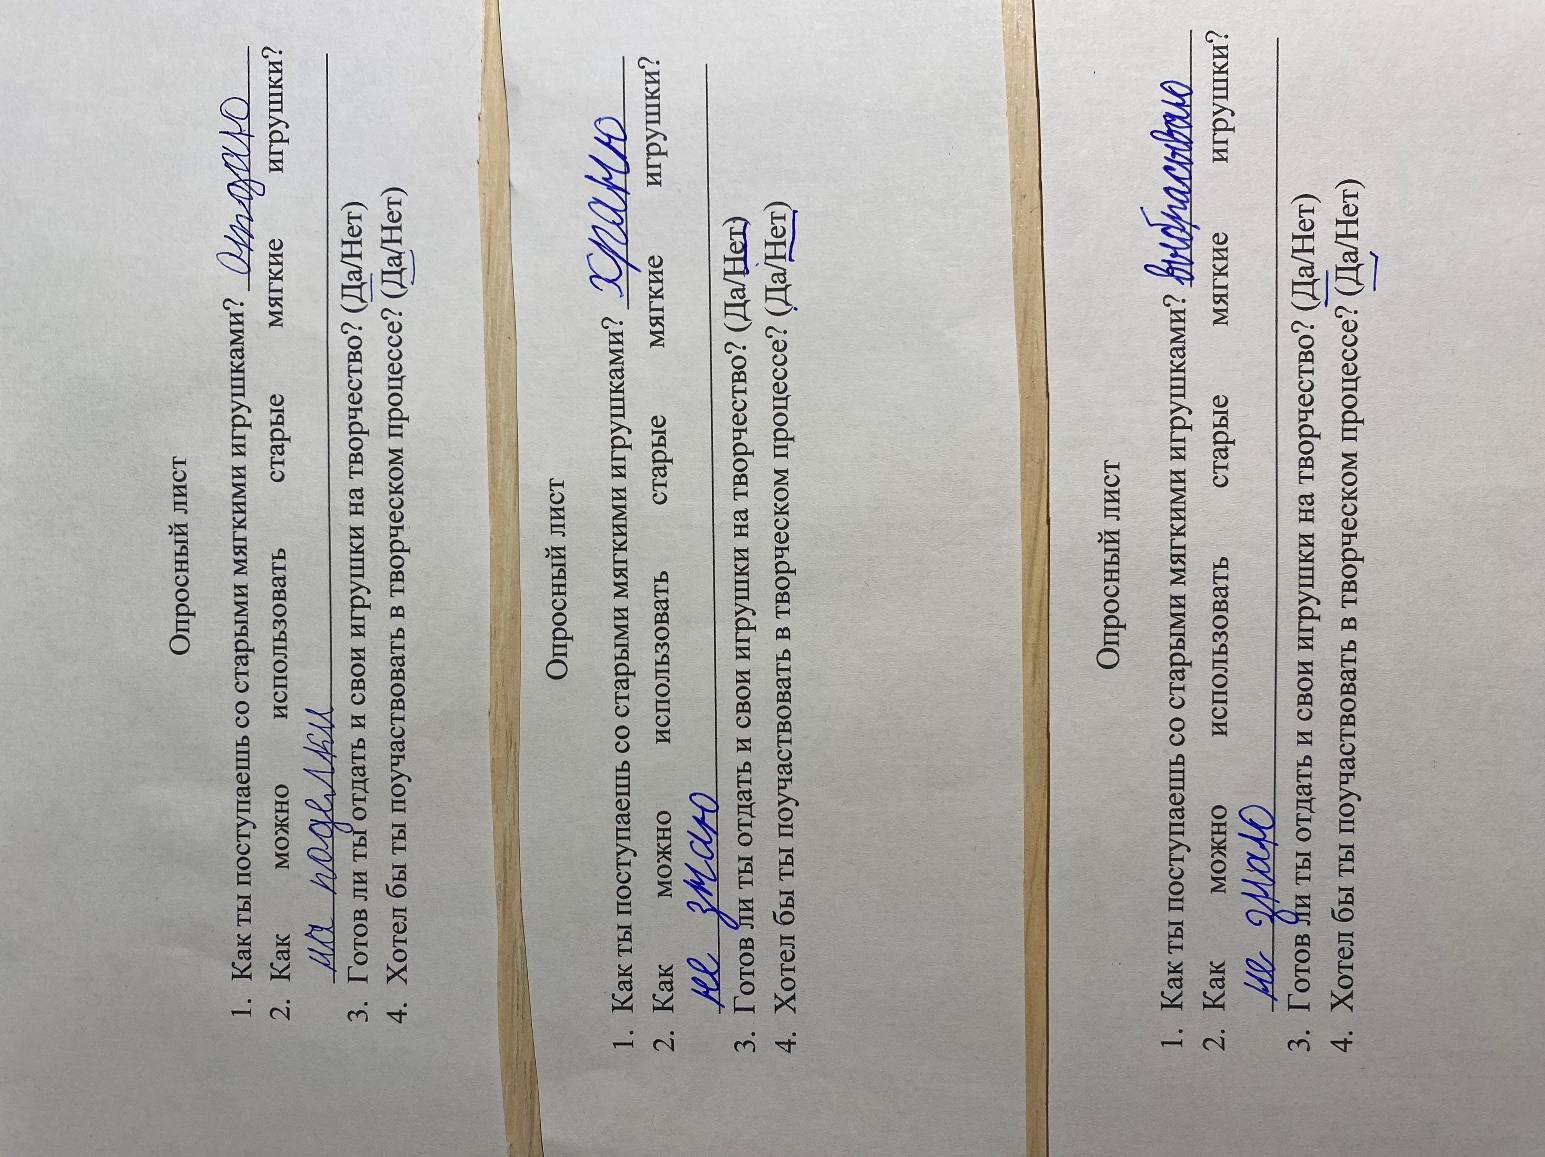 Опросный лист
1. Как ты поступаешь со старыми мягкими игрушками? отдаю
2. Как можно использовать старые мягкие игрушки?
на поделки
3. Готов ли ты отдать и свои игрушки на творчество? (Да/Нет)
4. Хотел бы ты поучаствовать в творческом процессе? (Да/Нет)
Опросный лист
1. Как ты поступаешь со старыми мягкими игрушками? храню
2. Как можно использовать старые мягкие игрушки?
не знаю
3. Готов ли ты отдать и свои игрушки на творчество? (Да/Нет)
4. Хотел бы ты поучаствовать в творческом процессе? (Да/Нет)
Опросный лист
1. Как ты поступаешь со старыми мягкими игрушками? выбрасываю
2. Как можно использовать старые мягкие игрушки?
не знаю
3. Готов ли ты отдать и свои игрушки на творчество? (Да/Нет)
4. Хотел бы ты поучаствовать в творческом процессе? (Да/Нет)